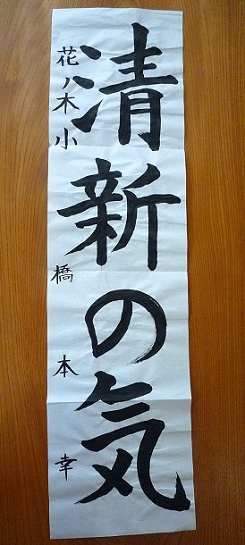 清新の気
花ノ木小
橋本幸